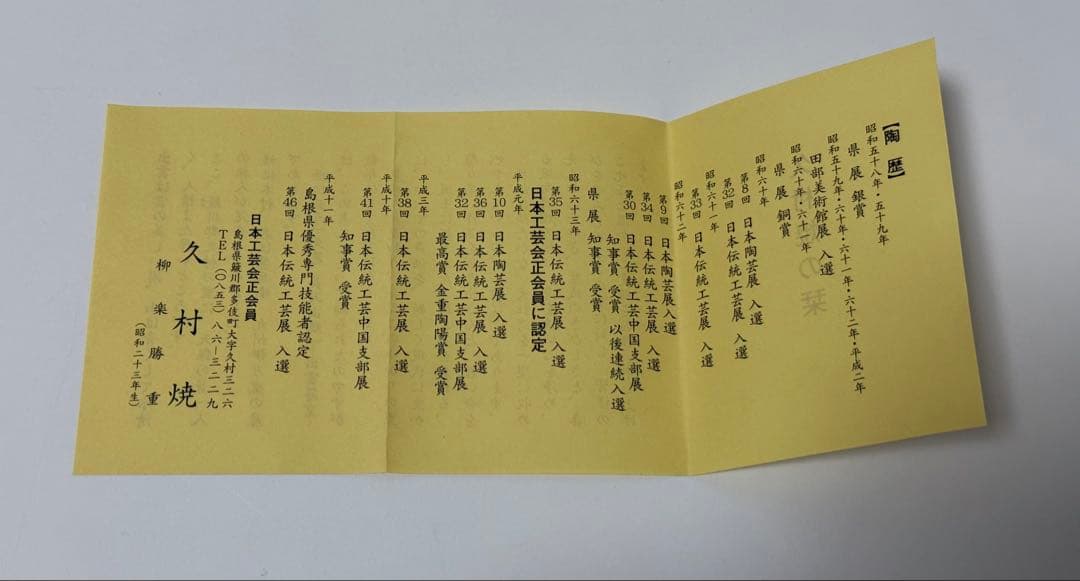 【陶歴】
昭和五十八年・五十九年
県展 銀賞
昭和五十九年・六十年・六十一年・六十二年・平成二年
田部美術館展 入選
昭和六十年・六十一年
県展 銅賞
昭和六十年
第8回 日本陶芸展 入選
第32回 日本伝統工芸展 入選
昭和六十一年
第33回 日本伝統工芸展 入選
昭和六十二年
第9回 日本陶芸展入選
第34回 日本伝統工芸展 入選
第30回 日本伝統工芸中国支部展
知事賞 受賞 以後連続入選
県展 知事賞 受賞
昭和六十三年
第35回 日本伝統工芸展 入選
日本工芸会正会員に認定
平成元年
第10回 日本陶芸展 入選
第36回 日本伝統工芸展 入選
第32回 日本伝統工芸中国支部展
最高賞 金重陶陽賞 受賞
平成三年
第38回 日本伝統工芸展 入選
平成十年
第41回 日本伝統工芸中国支部展
知事賞 受賞
平成十一年
島根県優秀専門技能者認定
第46回 日本伝統工芸展 入選
日本工芸会正会員
島根県簸川郡多伎町大字久村三二六
TEL(〇八五三)八六―三二二九
久村焼
柳楽勝重
(昭和二十三年生)